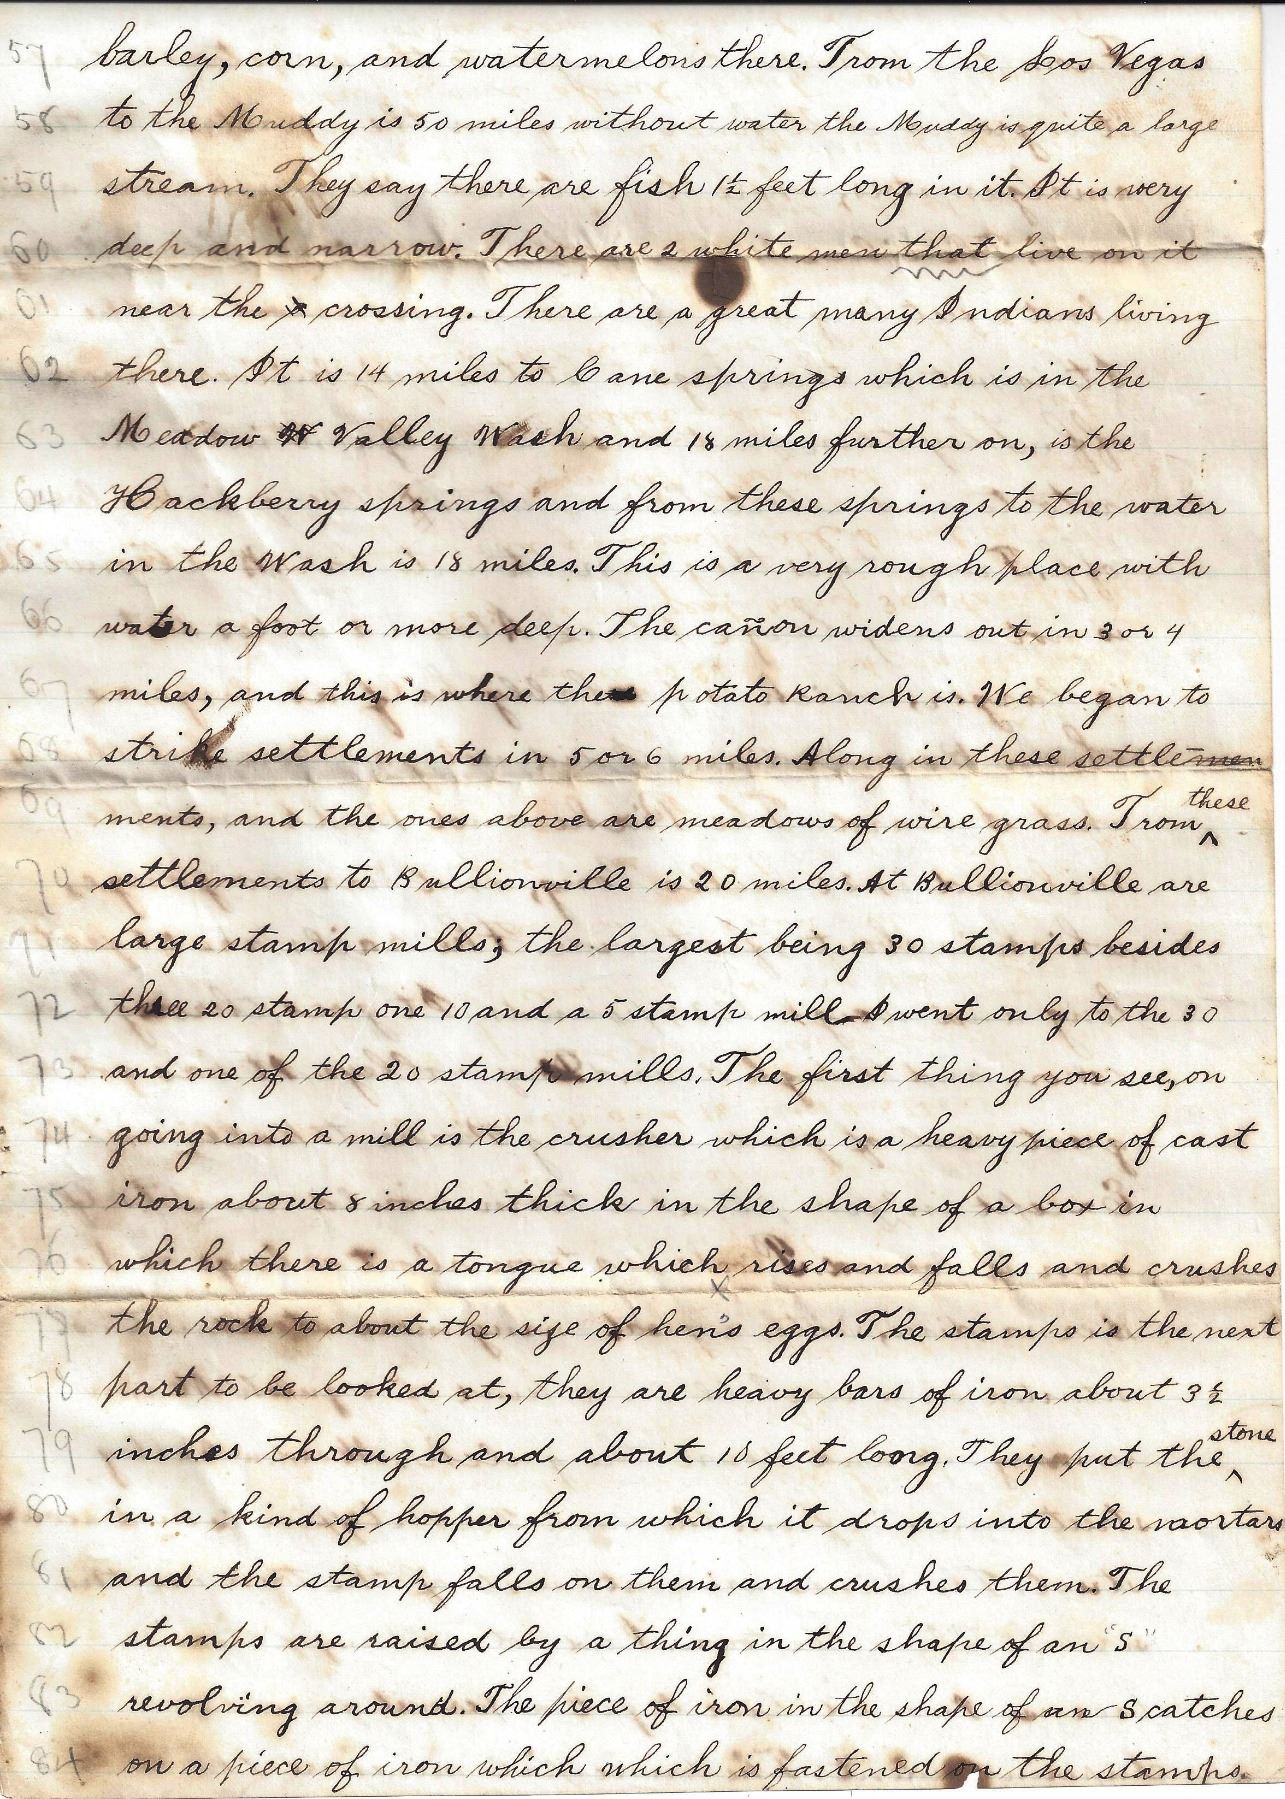 57 barley, corn, and watermelons there. From the Los Vegas
58 to the Muddy is 50 miles without water the Muddy is quite a large
59 stream. They say there are fish 1½ feet long in it. It is very
60 deep and narrow. There are 2 white men that live on it
61 near the crossing. There are a great many Indians living
62 there. It is 14 miles to Cane springs which is in the
63 Meadow W Valley Wash and 18 miles further on, is the
64 Hackberry springs and from these springs to the water
65 in the Wash is 18 miles. This is a very rough place with
66 water a foot or more deep. The cañon widens out in 3 or 4
67 miles, and this is where the potato Ranch is. We began to
68 strike settlements in 5 or 6 miles. Along in these settlemen
69 ments, and the ones above are meadows of wire grass. From these
70 settlements to Bullionville is 20 miles. At Bullionville are
71 large stamp mills; the largest being 30 stamps besides
72 three 20 stamp one 10 and a 5 stamp mill. I went only to the 30
73 and one of the 20 stamp mills. The first thing you see, on
74 going into a mill is the crusher which is a heavy piece of cast
75 iron about 8 inches thick in the shape of a box in
76 which there is a tongue which rises and falls and crushes
77 the rock to about the size of hen's eggs. The stamps is the next
78 part to be looked at, they are heavy bars of iron about 3½
79 inches through and about 10 feet loong. They put the stone
80 in a kind of hopper from which it drops into the mortars
81 and the stamp falls on them and crushes them. The
82 stamps are raised by a thing in the shape of an "S"
83 revolving around. The piece of iron in the shape of an S catches
84 on a piece of iron which which is fastened on the stamps.